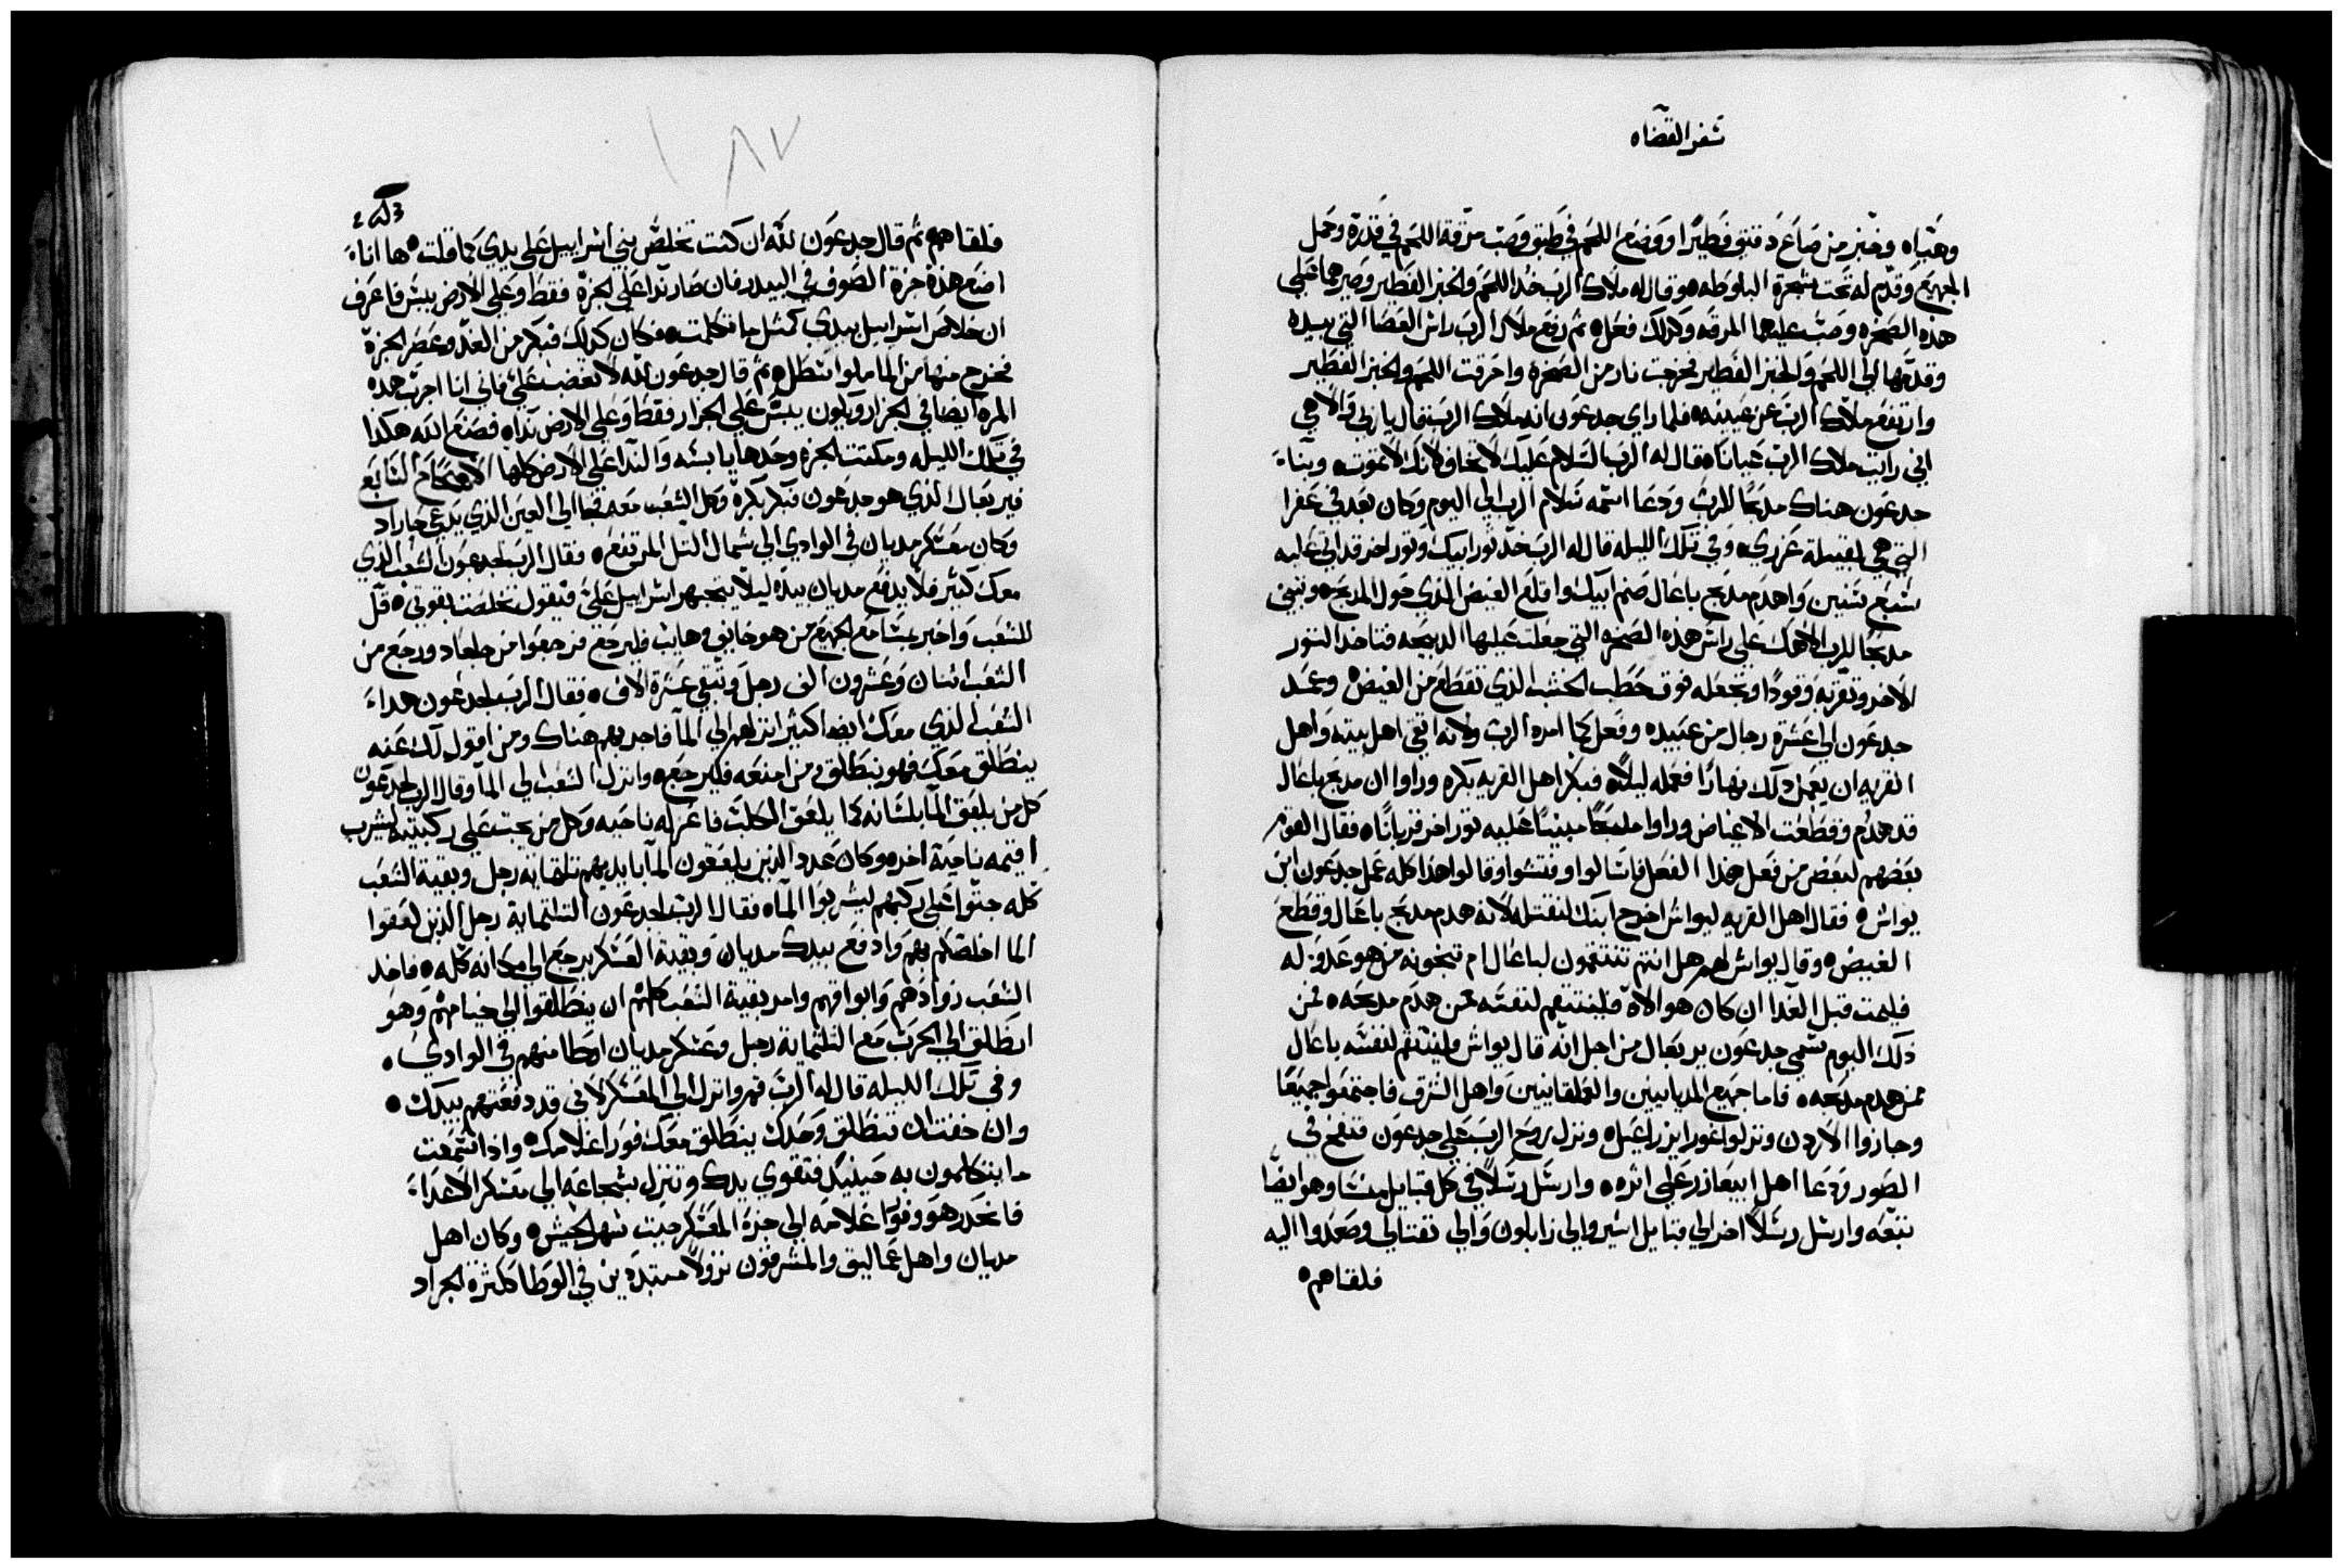 سفر القضاه
وهيّاه وخبز من صاعَ دقيق فطيرًا ووضع اللحم في طبق وصب مرقة اللحم في قدرة وحمل
الجميع وقدم له تحت شجرة البلوطه ٥ وقال له ملاك الرب خد اللحم والخبز الفطير وصيرهما على
هذه الصخره وصب عليهما المرقه وكدلك فعل ٥ ثم رفع ملاك الرب راس العصا التي بيده
وقدمها الى اللحم والخبز الفطير فخرجت نار من الصخره واحرقت اللحم والخبز الفطير
وارتفع ملاك الرب عن عينيه ٥ فلما راي جدعون انه ملاك الرب فقال يا ربي والاهي
اني رايت ملاك الرب عيانا ٥ فقال له الرب السلام عليك لا تخاف لانك لا تموت ٥ وبنا
جدعون هناك مدبحًا للرب ودعا اسمه سلام الرب الى اليوم وكان بعد في عفرا
التي هي لقبيلة عزري ٥ وفي تلك الليله قال له الرب خد ثور ابيك وثور اخر قد اتى عليه
سبع سنين واهدم مدبح باعال صنم ابيك واقلع الغيض الذي حول المدبح ٥ وتبني
مدبحًا للرب الاهك على راس هذه الصخره التي جعلت عليها الدبيحه فتاخد الثور
الاخر وتقربه وقودًا وتجعله فوق حطب الخشب الذي تقطع من الغيض ٥ وعمد
جدعون الى عشرة رجال من عبيده وفعل كما امره الرب ولانه اتقى اهل بيته واهل
القريه ان يعمل دلك نهارًا فعمله ليلًا ٥ فبكر اهل القريه بكره وراوا ان مدبح باعال
قد هدم وقطعت الاغياض وراوا مدبحًا مبنيًا عليه ثور اخر قربانًا ٥ فقال القوم
بعضهم لبعض من فعل هذا الفعل فاسالوا وفتشوا وقالوا هذا كله عمل جدعون ابن
يواش ٥ فقال اهل القريه ليواش اخرج ابنك لنقتله لانه هدم مدبح باعال وقطع
الغيض ٥ وقال يواش لهم هل انتم تنتقمون لباعال ام تنجونه من هو عدو له
فليمت قبل الغدا ان كان هو الاه فلينتقم لنفسه ممن هدم مدبحه ٥ فمن
ذلك اليوم سمي جدعون يربعال من اجل انه قال يواش فلينتقم لنفسه باعال
ممن هدم مدبحه ٥ فاما جميع المديانيين والعملقانيين واهل الشرق فاجتمعوا جميعًا
وجازوا الاردن ونزلوا غور ايزراعيل ٥ ونزل روح الرب على جدعون فنفخ في
الصور ودعا اهل ابيعازر على اثره ٥ وارسل رسلًا في كل قبايل منسا وهو ايضًا
تبعه وارسل رسلًا اخر الى قبايل اشير والى زابلون والى نفتالي وصعدوا اليه
فلقاهم ٥
١٨٧
فلقاهم ثم قال جدعون لله ان كنت تخلص بني اسراييل على يدي كما قلت ٥ ها انا
اضع هذه جزة الصوف في البيدر فان صار ندا على الجزة فقط وعلى الارض يبس فاعرف
ان خلاص اسراييل بيدي كمثل ما تكلمت ٥ فكان كدلك فبكر من الغد وعصر الجزة
فخرج منها من الما ملوا سطل ٥ ثم قال جدعون لله لا تغضب علي فاني انا اجرب هده
المره ايضا في الجزار ويكون يبس على الجزار فقط وعلى الارض ندا ٥ فصنع الله هكذا
في تلك الليله ومكتت الجزة وحدها يابسه والندا على الارض كلها الاصحاح السابع
فيربعال الذي هو جدعون فبكر بكرة وكل الشعب معه فجا الى العين الذي يدعى حاراد
وكان معسكر مديان في الوادي الى شمال التل المرتفع ٥ فقال الرب لجدعون الشعب الذي
معك كثير فلا يدفع مديان بيده ليلا يتجبهر اسراييل علي فيقول تخلصت بقوتي ٥ قل
للشعب واخبر مسامع الجميع من هو خايف وهايب فليرجع فرجعوا من جلعاد ورجع من
الشعب اثنان وعشرون الف رجل وتبقى عشرة الاف ٥ فقال الرب لجدعون هدا
الشعب الذي معك ايضا كثير انزلهم الى الما فاجربهم هناك ومن اقول لك عنه
ينطلق معك فهو ينطلق ومن امنعه فليرجع ٥ وانزل الشعب الى الما وقال الرب لجدعون
كل من يلعق الما بلسانه كما يلعق الكلب فاعزله ناحيه وكل من يجث على ركبتيه ليشرب
اقيمه ناحية اخره ٥ وكان عدد الذين يلعقون الما بايديهم تلتماية رجل وبقية الشعب
كله جثوا على ركبهم ليشربوا الما ٥ فقال الرب لجدعون التلتماية رجل الذين لعقوا
الما اخلصكم بهم وادفع بيدك مديان وبقية العسكر يرجع الى مكانه كله ٥ فاخد
الشعب زوادهم وابواقهم وامر بقية الشعب كلهم ان ينطلقوا الى خيامهم وهو
انطلق الى الحرب مع التلتماية رجل وعسكر مديان اوطا منهم في الوادي ٥
وفي تلك الليله قال له الرب قم وانزل الى المعسكر لاني قد دفعتهم بيدك ٥
وان خفت ان تنطلق وحدك ينطلق معك فورا غلامك ٥ واذا سمعت
ما يتكلمون به حينيد فتقوى يدك وتنزل بشجاعه الى معسكر الاعداء
فانحدر هو وفورا غلامه الى جزة المعسكر حيث شهر الجيش ٥ وكان اهل
مديان واهل عماليق والمشرقون نزولًا مبتددين في الوطا ككثرة الجراد